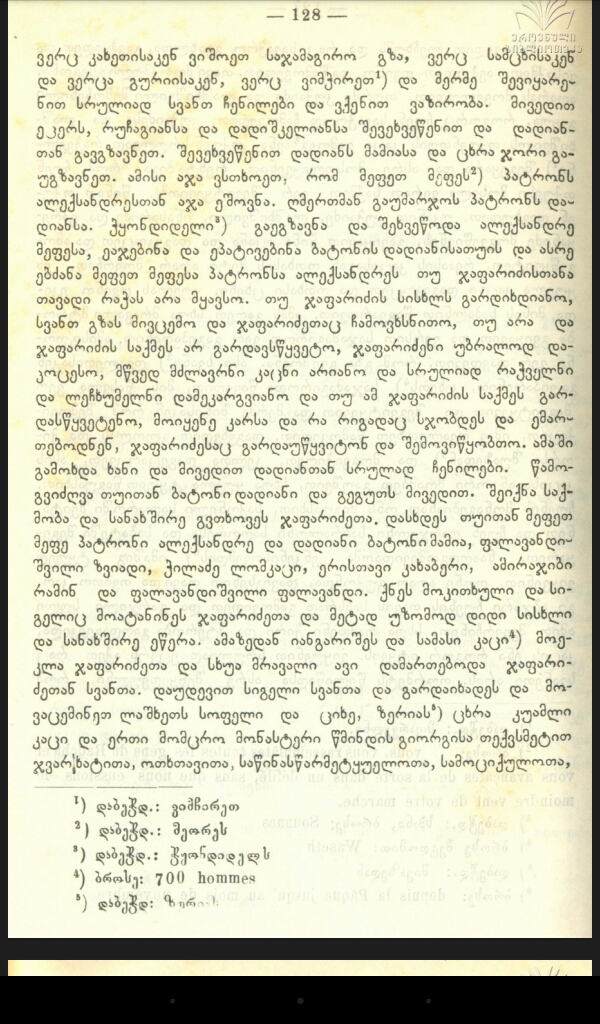 — 128 —
ეროვნული
ბიბლიოთეკა
ვერც კახეთისაკენ ვიშოეთ საჯამაგირო გზა, ვერც სამცხისაკენ
და ვერცა გურიისაკენ, ვერც ვიმჰირეთ¹) და მერმე შევიყარე-
ნით სრულიად სვანთ ჩენილები და ვქენით ვაზირობა. მივედით
ეცერს, რუჩაგიანსა და დადიშკელიანსა შევეხვეწენით და დადიან-
თან გავგზავნეთ. შევეხვეწენით დადიანს მამიასა და ცხრა ჯორი გა-
უგზავნეთ. ამისი აჯა ვსთხოეთ, რომ მეფეთ მეფეს²) პატრონს
ალექსანდრესთან აჯა ეშოვნა. ღმერთმან გაუმარჯოს პატრონს და-
დიანსა. ჭყონდიდელი³) გაეგზავნა და შეხვეწოდა ალექსანდრე
მეფესა, ეაჯებინა და ეპატივებინა ბატონის დადიანისათუის და ასრე
ებძანა მეფეთ მეფესა პატრონსა ალექსანდრეს თუ ჯაფარიძისთანა
თავადი რაჭას არა მყავსო. თუ ჯაფარიძის სისხლს გარდიხდიანო,
სვანთ გზას მივცემო და ჯაფარიძეთაც ჩამოვხსნითო, თუ არა და
ჯაფარიძის საქმეს არ გარდავსწყვეტო, ჯაფარიძენი უბრალოდ და-
კოცესო, მწვედ მძლავრნი კაცნი არიანო და სრულიად რაჭველნი
და ლეჩხუმელნი დამეკარგვიანო და თუ ამ ჯაფარიძის საქმეს გარ-
დასწყვეტენო, მოიყენე კარსა და რა რიგადაც სჯობდეს და ემარ-
თებოდნენ, ჯაფარიძესაც გარდაუწყვიტონ და შემოვიწყობთო. ამაში
გამოხდა ხანი და მივედით დადიანთან სრულად ჩენილები. წამო-
გვიძღვა თუითან ბატონი დადიანი და გეგუთს მივედით. შეიქნა საქ-
მობა და სანახშირე გვთხოვეს ჯაფარიძეთა. დასხდეს თუითან მეფეთ
მეფე პატრონი ალექსანდრე და დადიანი ბატონი მამია, ფალავანდი-
შვილი ზვიადი, ჭილაძე ლომკაცი, ერისთავი კახაბერი, ამირაჯიბი
რამინ და ფალავანდიშვილი ფალავანდი. ქნეს მოკითხული და სი-
გელიც მოატანინეს ჯაფარიძეთა და მეტად უზომოდ დიდი სისხლი
და სანახშირე ეწერა. ამაზედან იანგარიშეს და სამასი კაცი⁴) მოე-
კლა ჯაფარიძეთა და სხუა მრავალი ავი დამართებოდა ჯაფარი-
ძეთან სვანთა. დაუდევით სიგელი სვანთა და გარდაიხადეს და მო-
ვაცემინეთ ლაშხეთს სოფელი და ციხე, ზერიას⁵) ცხრა კუამლი
კაცი და ერთი მომცრო მონასტერი წმინდის გიორგისა თექვსმეტით
ჯვარხატითა, ოთხთავითა, საწინასწარმეტყუელოთა, სამოციქულოთა,
¹) დაბეჭდ.: ვიმჩარეთ
²) დაბეჭდ.: მეორეს
³) დაბეჭდ.: ჭყონდიდელს
⁴) ბროსე: 700 hommes
⁵) დაბეჭდ: